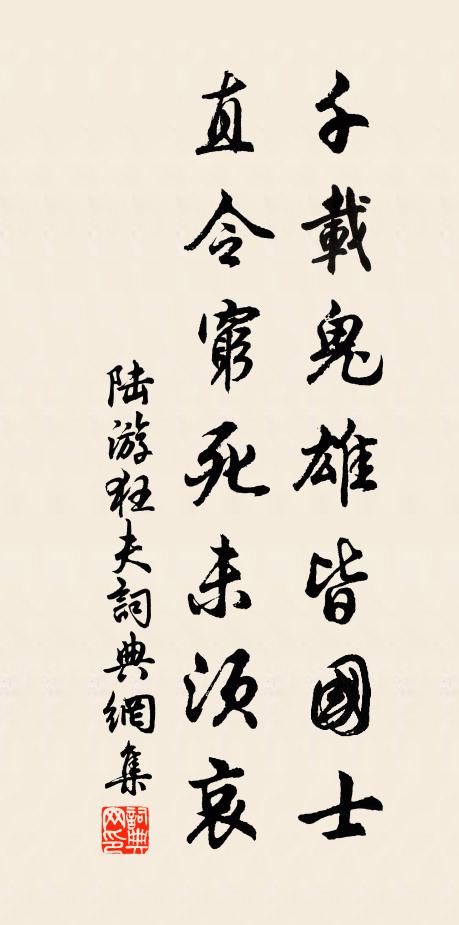 千載鬼雄皆國士
直令窮死未須哀
陆游狂夫詞典網集
詞典网印